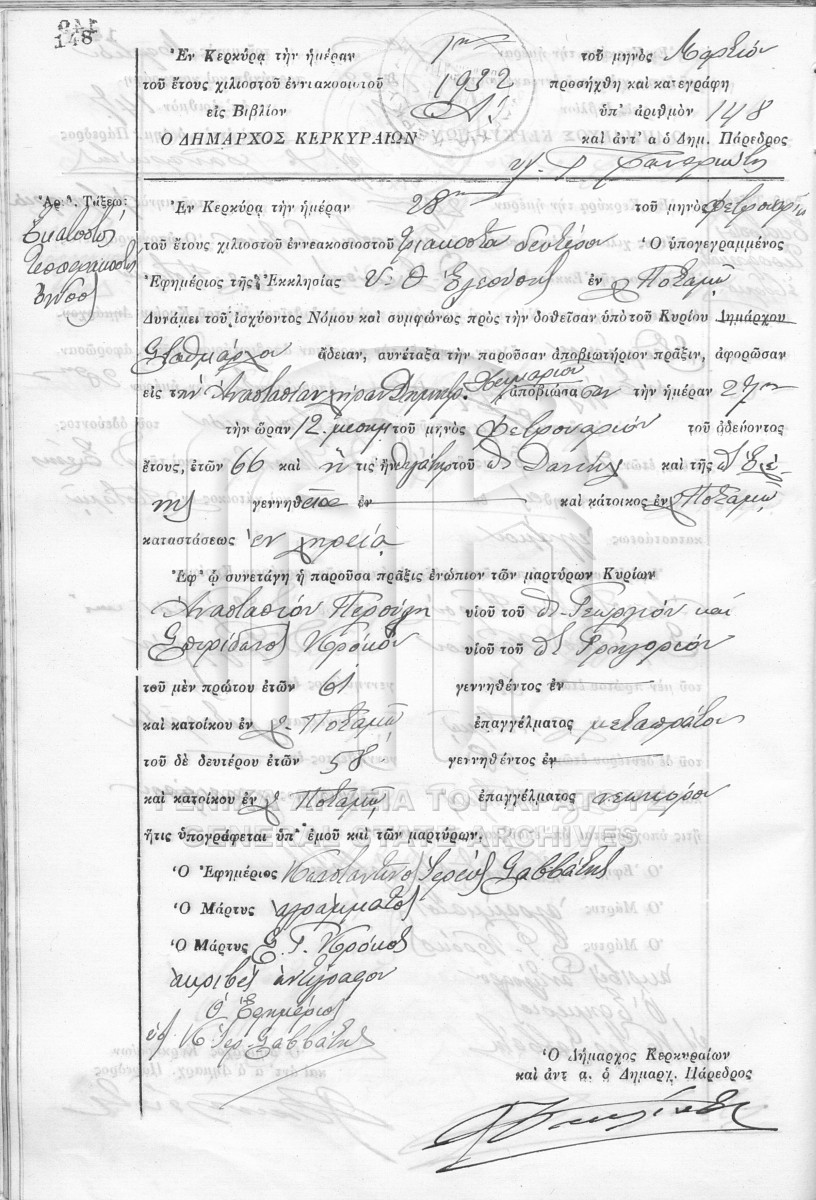 148
Ἐν Κερκύρᾳ τὴν ἡμέραν 1ην τοῦ μηνὸς Μαρτίου
τοῦ ἔτους χιλιοστοῦ ἐννιακοσιοστοῦ 1932 προσήχθη καὶ κατεγράφη
εἰς Βιβλίον Α! ὑπ' ἀριθμὸν 148
Ο ΔΗΜΑΡΧΟΣ ΚΕΡΚΥΡΑΙΩΝ καὶ ἀντ' α ὁ Δημ. Πάρεδρος
Ἀρ. Τάξεως
Ἑκατοστὸς
τεσσαρακοστὸς
ὄγδοος
Ἐν Κερκύρᾳ τὴν ἡμέραν 28ην τοῦ μηνὸς Φεβρουαρίου
τοῦ ἔτους χιλιοστοῦ ἐννεακοσιοστοῦ τριακοστοῦ δευτέρου Ὁ ὑπογεγραμμένος
Ἐφημέριος τῆς Ἐκκλησίας Υ. Θ. Ἐλεούσης ἐν χ. Ποταμῷ
Δυνάμει τοῦ ἰσχύοντος Νόμου καὶ συμφώνως πρὸς τὴν δοθεῖσαν ὑπὸ τοῦ Κυρίου Δημάρχου
Σταθμάρχου ἄδειαν, συνέταξα τὴν παροῦσαν ἀποβιωτήριον πρᾶξιν, ἀφορῶσαν
εἰς τὴν Ἀναστασίαν χήραν Δημητρ. ἀποβιώσασαν τὴν ἡμέραν 27ην
τὴν ὥραν 12 μεσημ τοῦ μηνὸς Φεβρουαρίου τοῦ ὁδεύοντος
ἔτους, ἐτῶν 66 καὶ ἥτις ἦν θυγάτηρ τοῦ καὶ τῆς
γεννηθεῖσα ἐν καὶ κάτοικος ἐν χ. Ποταμῷ
καταστάσεως ἐν χηρείᾳ
Ἐφ' ᾧ συνετάγη ἡ παροῦσα πρᾶξις ἐνώπιον τῶν μαρτύρων Κυρίων
Ἀναστασίου Περούλη υἱοῦ τοῦ Γεωργίου καὶ
Σπυρίδωνος Κρόκου υἱοῦ τοῦ Γρηγορίου
τοῦ μὲν πρώτου ἐτῶν 61 γεννηθέντος ἐν
καὶ κατοίκου ἐν χ. Ποταμῷ ἐπαγγέλματος μεταπράτου
τοῦ δὲ δευτέρου ἐτῶν 58 γεννηθέντος ἐν
καὶ κατοίκου ἐν χ. Ποταμῷ ἐπαγγέλματος
ΓΕΝΙΚΑ ΑΡΧΕΙΑ ΤΟΥ ΚΡΑΤΟΥΣ
ἥτις ὑπογράφεται ὑπ' ἐμοῦ καὶ τῶν μαρτύρων.
GENERAL STATE ARCHIVES
Ὁ Ἐφημέριος Κωνσταντῖνος Ἱερεὺς Σαββάτης
Ὁ Μάρτυς ἀγράμματος
Ὁ Μάρτυς Σ. Γ. Κρόκος
ἀκριβὲς ἀντίγραφον
Ὁ Ἐφημέριος
Κ. Ἱερ. Σαββάτης
Ὁ Δήμαρχος Κερκυραίων
καὶ ἀντ. α. ὁ Δημαρχ. Πάρεδρος